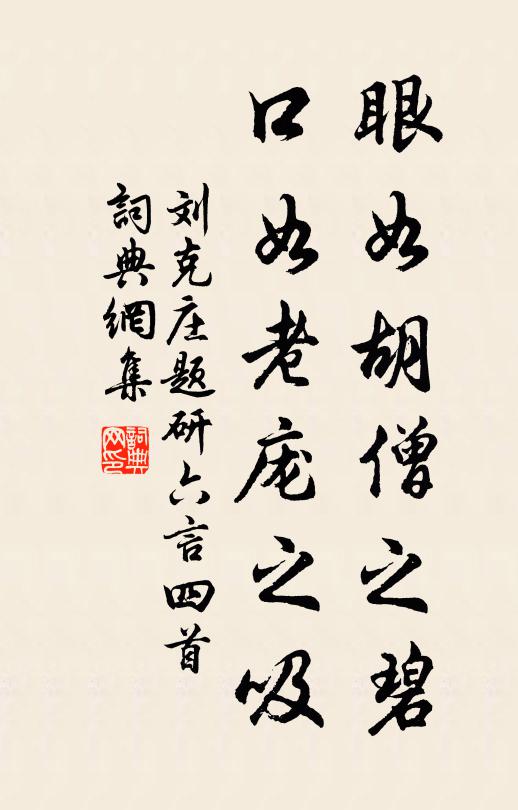 眼如胡僧之碧
口如老庞之吸
刘克庄题研六言四首
詞典網集
詞典
网印